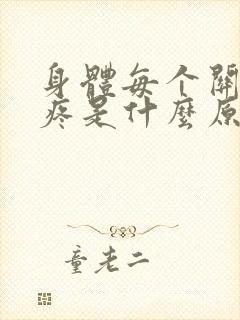 身體每个関
疼是什麼原
童老二